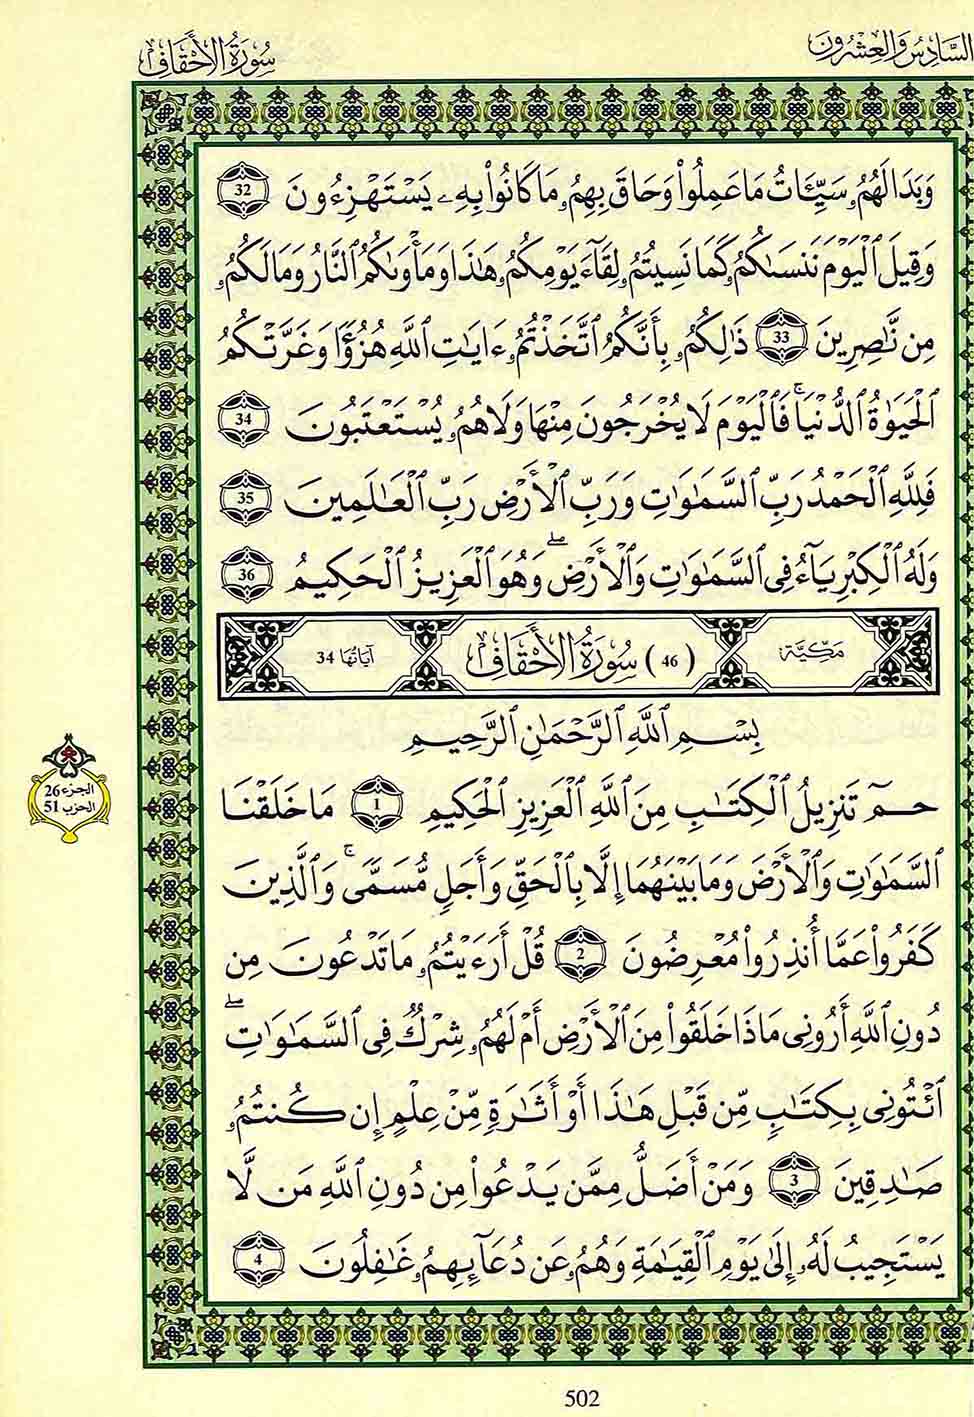 السَّادِسُ وَالعِشْرُونَ
سُورَةُ الأَحْقَافِ
وَبَدَا لَهُمُۥ سَيِّـَٔاتُ مَا عَمِلُواْ وَحَاقَ بِهِمُۥ مَا كَانُواْ بِهِۦ يَسْتَهْزِءُونَ 32
وَقِيلَ اَ۬لْيَوْمَ نَنسَىٰكُمُۥ كَمَا نَسِيتُمُۥ لِقَآءَ يَوْمِكُمُۥ هَٰذَا وَمَأْوَىٰكُمُ اُ۬لنَّارُ وَمَا لَكُمُۥ
مِن نَّٰصِرِينَ 33 ذَٰلِكُمُۥ بِأَنَّكُمُ اُ۪تَّخَذتُّمُۥ ءَايَٰتِ اِ۬للَّهِ هُزُؤٗا وَغَرَّتْكُمُ
اُ۬لْحَيَوٰةُ اُ۬لدُّنْيَاۚ فَالْيَوْمَ لَا يُخْرَجُونَ مِنْهَا وَلَا هُمُۥ يُسْتَعْتَبُونَ 34
فَلِلَّهِ اِ۬لْحَمْدُ رَبِّ اِ۬لسَّمَٰوَٰتِ وَرَبِّ اِ۬لْأَرْضِ رَبِّ اِ۬لْعَٰلَمِينَ 35
وَلَهُ اُ۬لْكِبْرِيَآءُ فِي اِ۬لسَّمَٰوَٰتِ وَالْأَرْضِۖ وَهُوَ اَ۬لْعَزِيزُ اُ۬لْحَكِيمُ 36
مَكِّيَّة (46) سُورَةُ الأَحْقَافِ آيَاتُهَا 34
بِسْمِ اِ۬للَّهِ اِ۬لرَّحْمَٰنِ اِ۬لرَّحِيمِ
الجزء 26
الحزب 51
حمٓ تَنزِيلُ اُ۬لْكِتَٰبِ مِنَ اَ۬للَّهِ اِ۬لْعَزِيزِ اِ۬لْحَكِيمِ 1 مَا خَلَقْنَا
اَ۬لسَّمَٰوَٰتِ وَالْأَرْضَ وَمَا بَيْنَهُمَا إِلَّا بِالْحَقِّ وَأَجَلٖ مُّسَمّٗىۚ وَالَّذِينَ
كَفَرُواْ عَمَّا أُنذِرُواْ مُعْرِضُونَ 2 قُلْ أَرَءَيْتُمُۥ مَا تَدْعُونَ مِن
دُونِ اِ۬للَّهِ أَرُونِي مَاذَا خَلَقُواْ مِنَ اَ۬لْأَرْضِ أَمْ لَهُمُۥ شِرْكٞ فِي اِ۬لسَّمَٰوَٰتِۖ
اِ۪ئْتُونِي بِكِتَٰبٖ مِّن قَبْلِ هَٰذَا أَوْ أَثَٰرَةٖ مِّنْ عِلْمٍ إِن كُنتُمُۥ
صَٰدِقِينَ 3 وَمَنْ أَضَلُّ مِمَّن يَدْعُواْ مِن دُونِ اِ۬للَّهِ مَن لَّا
يَسْتَجِيبُ لَهُۥ إِلَىٰ يَوْمِ اِ۬لْقِيَٰمَةِ وَهُمُۥ عَن دُعَآئِهِمُۥ غَٰفِلُونَ 4
502